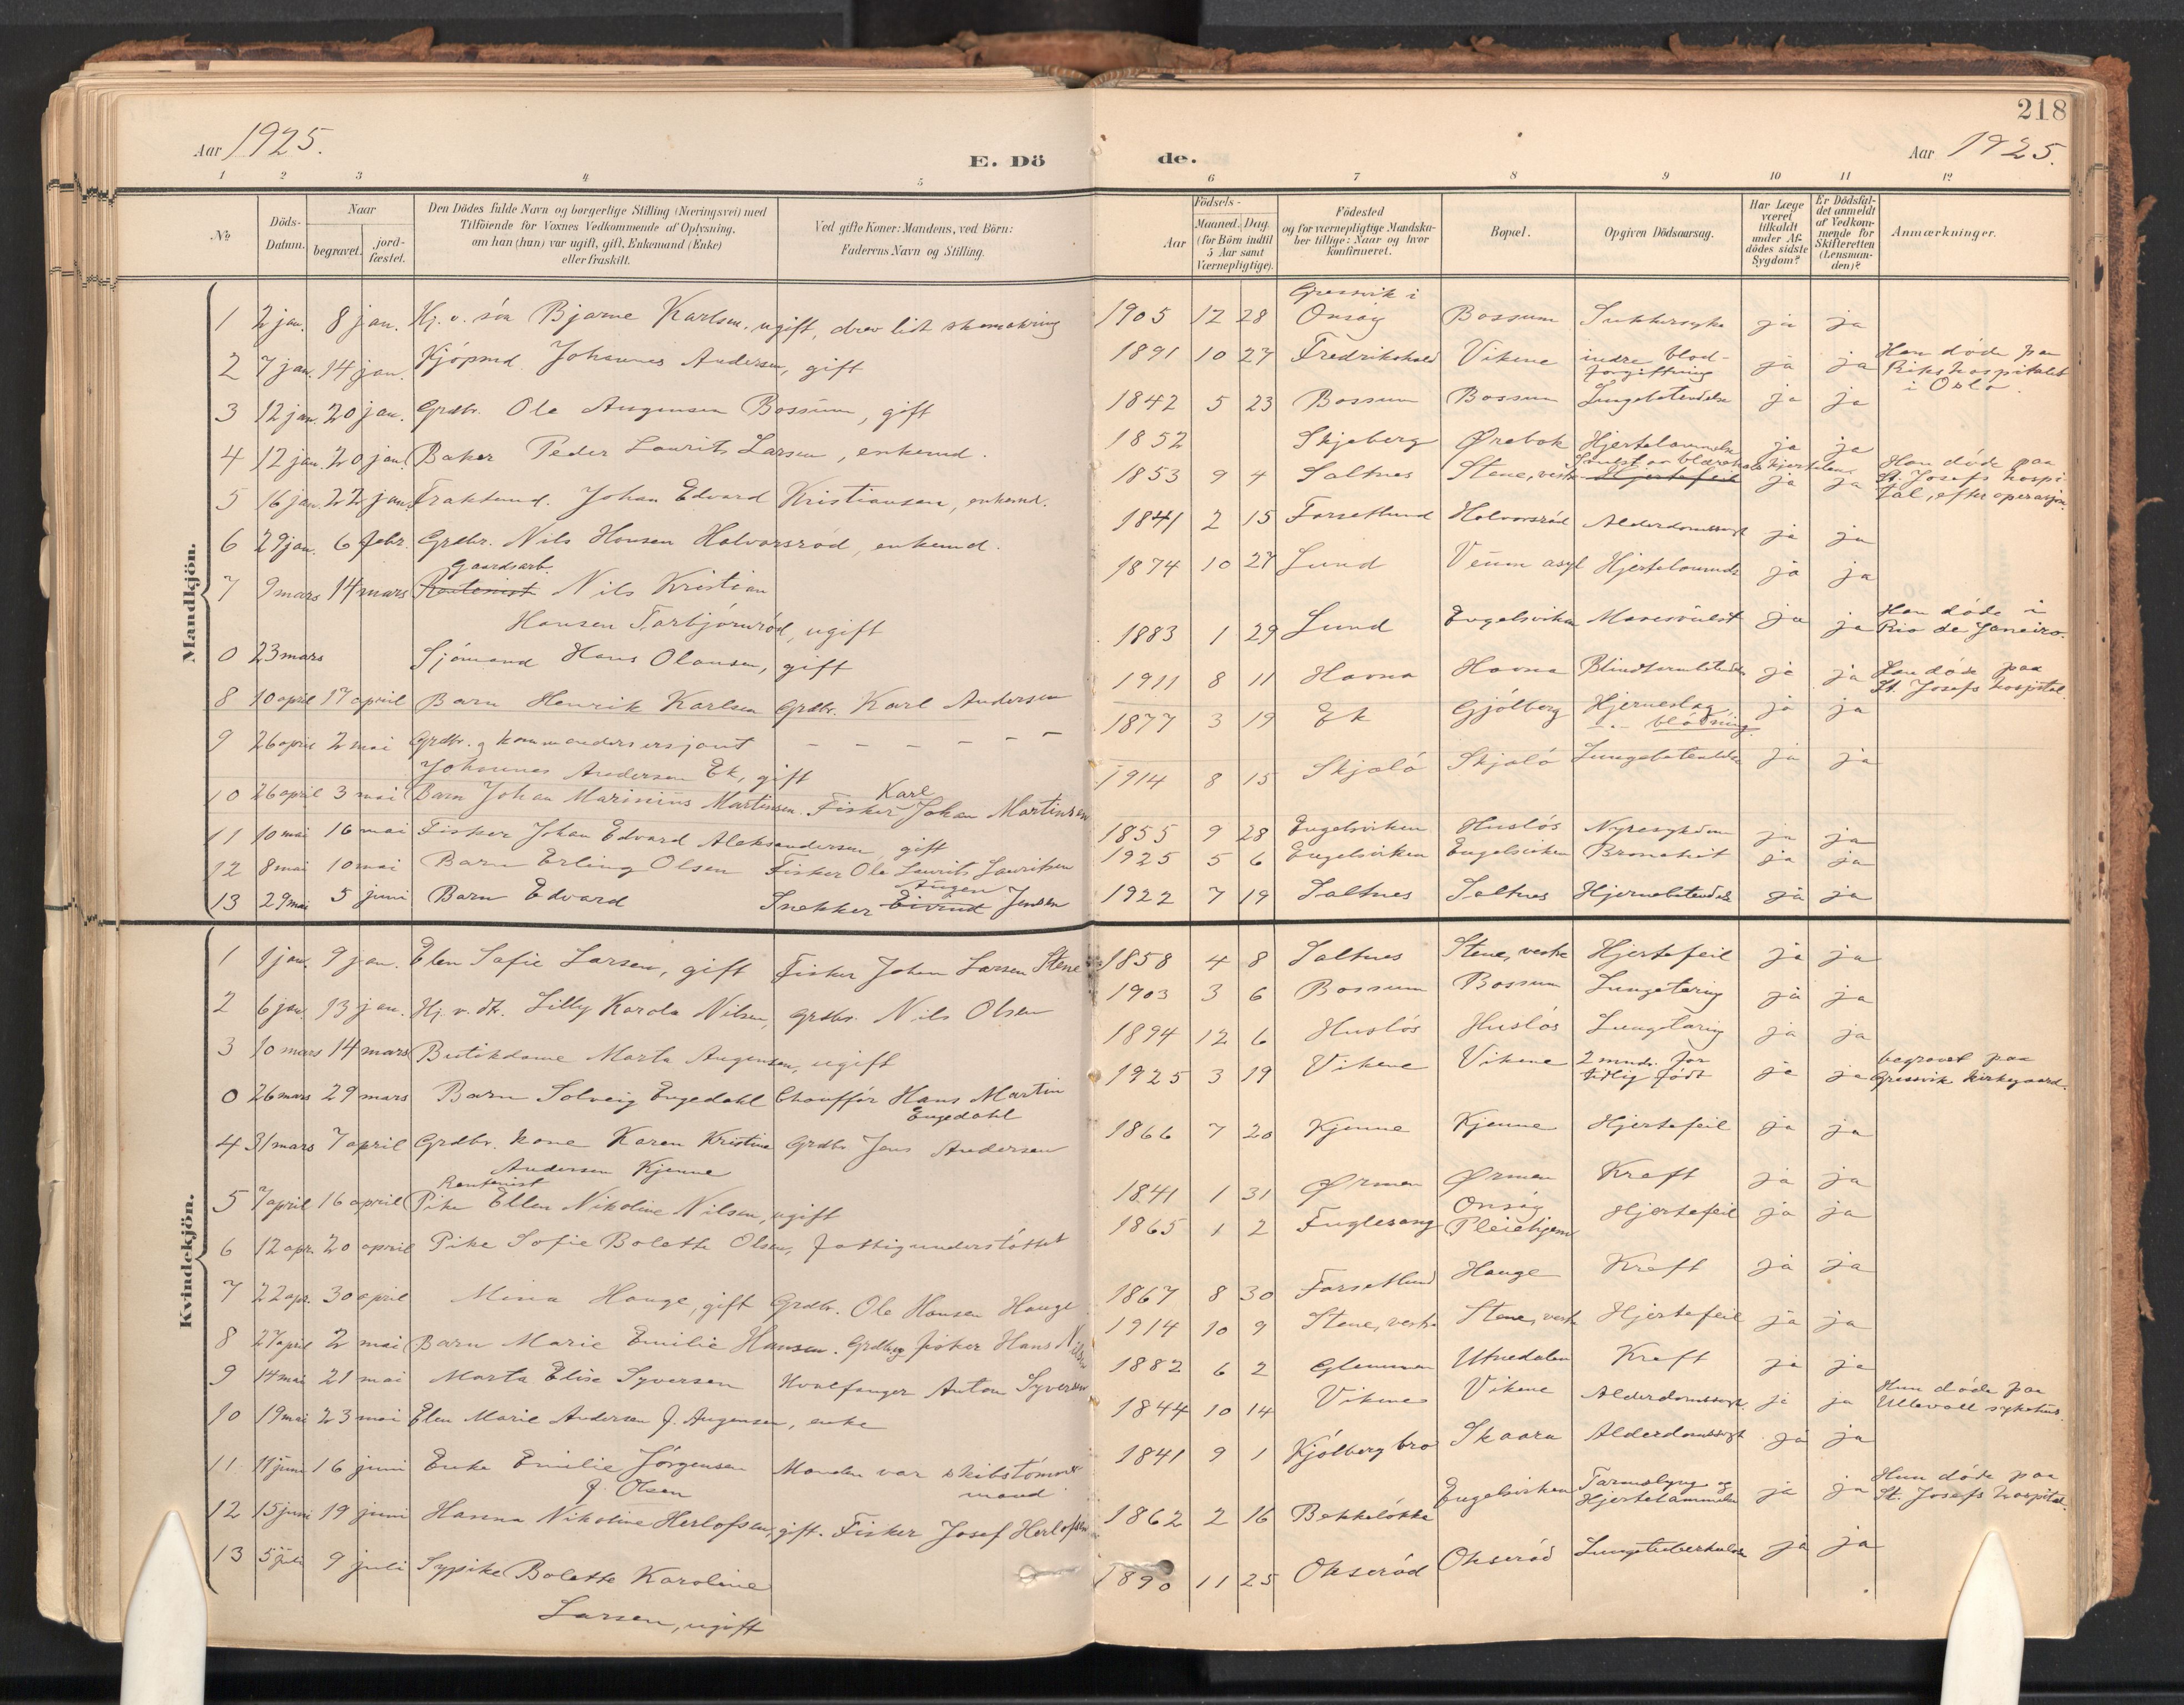 218
Aar 1925.
E. Dö
de.
Aar 1925.
1 2 3 4 5 6 7 8 9 10 11 12
No
Döds-Datum.
Naar
begravet.
jord-fæstet.
Den Dödes fulde Navn og borgerlige Stilling (Næringsvei) med
Tilföiende for Voxnes Vedkommende af Oplysning,
om han (hun) var ugift, gift, Enkemand (Enke)
eller fraskilt.
Ved gifte Koner: Mandens, ved Börn:
Faderens Navn og Stilling.
Födsels-
Aar
Maaned. Dag.
(for Börn indtil
5 Aar samt
Værnepligtige).
Födested
og for værnepligtige Mandska-
ber tillige: Naar og hvor
konfirmeret.
Bopæl.
Opgiven Dödsaarsag.
Har Læge
været
tilkaldt
under Af-
dödes sidste
Sygdom?
Er Dödsfal-
det anmeldt
af Vedkom-
mende for
Skifteretten
(Lensman-
den)?
Anmærkninger.
Mandkjön.
1 2 jan. 8 jan. Hj. v. sön Bjarne Karlsen, ugift, drev lidt skomakring 1905 12 28 Gressvik i Onsöy Bossum Sukkersyke ja ja
2 7 jan. 14 jan. Kjöpmd. Johannes Andersen, gift 1891 10 27 Fredrikshald Vikene indre blod-forgiftning ja ja Han döde paa Rikshospitalet i Oslo.
3 12 jan. 20 jan. Grdbr. Ole Augensen Bossum, gift 1842 5 23 Bossum Bossum Lungebetendelse ja ja
4 12 jan. 20 jan. Baker Peder Laurits Larsen, enkemd. 1852 Skjeberg Ørebæk Hjertelammelse ja ja
5 16 jan. 22 jan. Fraktemd. Johan Edvard Kristiansen, enkemd. 1853 9 4 Saltnes Stene, vestre Hjertefeil ja ja Han döde paa St. Josefs hospital, efter operasjon.
6 29 jan. 6 febr. Grdbr. Nils Hansen Halvorsröd, enkemd. 1841 2 15 Forsetlund Halvorsröd Alderdomssvgt ja ja
7 9 mars 14 mars Gaardsarb. Rentenist Nils Kristian
Hansen Torbjörnröd, ugift 1874 10 27 Lund Veum asyl Hjertelammelse ja ja
0 23 mars Sjömand Hans Olausen, gift 1883 1 29 Lund Engelsviken Mavesvulst ja ja Han döde i Rio de Janeiro.
8 10 april 17 april Barn Henrik Karlsen Grdbr. Karl Andersen 1911 8 11 Havna Havna Blindtarmbetendelse ja ja Han döde paa St. Josefs hospital.
9 26 april 2 mai Grdbr. og kommandersersjant - - - - - -
Johannes Andersen Ek, gift 1877 3 19 Ek Gjölberg Hjerneslag -"- blödning ja ja
10 26 april 3 mai Barn Johan Marinius Martinsen. Fisker Karl Johan Martinsen 1914 8 15 Skjælö Skjælö Lungebetendelse ja ja
11 10 mai 16 mai Fisker Johan Edvard Aleksandersen, gift 1855 9 28 Engelsviken Huslös Nyresykdom ja ja
12 8 mai 10 mai Barn Erling Olsen Fisker Ole Laurits Lauritsen 1925 5 6 Engelsviken Engelsviken Bronchit ja ja
13 29 mai 5 juni Barn Edvard Snekker Eivind Augen Jensen 1922 7 19 Saltnes Saltnes Hjernebetendelse ja ja
Kvindekjön.
1 1 jan. 9 jan. Elen Sofie Larsen, gift Fisker Johan Larsen Stene 1858 4 8 Saltnes Stene, vestre Hjertefeil ja ja
2 6 jan. 13 jan. Hj. v. dt. Lilly Karola Nilsen, Grdbr. Nils Olsen 1903 3 6 Bossum Bossum Lungetæring ja ja
3 10 mars 14 mars Butikdame Marta Augensen, ugift 1894 12 6 Huslös Huslös Lungetæring ja ja
0 26 mars 29 mars Barn Solveig Engedahl Chaufför Hans Martin Engedahl 1925 3 19 Vikene Vikene 2 mndr. for tidlig födt ja ja begravet paa Gressvik kirkegaard.
4 31 mars 7 april Grdbr. kone Karen Kristine
Andersen Kjenne Grdbr Jens Andersen 1866 7 20 Kjenne Kjenne Hjertefeil ja ja
5 7 april 16 april Rentenist Pike Ellen Nikoline Nilsen, ugift 1841 1 31 Ørmen Ørmen Kreft ja ja
6 12 apr. 20 april Pike Sofie Bolette Olsen, fattigunderstöttet 1865 1 2 Fuglesang Onsöy Pleiehjem Hjertefeil ja ja
7 22 apr. 30 april Mina Hauge, gift Grdbr. Ole Hansen Hauge 1867 8 30 Forsetlund Hauge Kreft ja ja
8 27 april 2 mai Barn Marie Emilie Hansen. Grdbr. og fisker Hans Nilsen 1914 10 9 Stene, vestre Stene, vestre Hjertefeil ja ja
9 14 mai 21 mai Marta Elise Syversen Hvalfanger Anton Syversen 1882 6 2 Glemmen Utnedalen Kreft ja ja
10 19 mai 23 mai Elen Marie Andersen f. Augensen, enke 1844 10 14 Vikene Vikene Alderdomssvgt. ja ja Hun döde paa Ullevoll sykehus.
11 11 juni 16 juni Enke Emilie Jörgensen
f. Olsen Manden var skibstömmermand 1841 9 1 Kjölberg bro Skaara Alderdomssvgt ja ja
12 15 juni 19 juni Hanna Nikoline Herlofsen, gift. Fisker Josef Herlofsen 1862 2 16 Bekkelökke Engelsviken Tarmslyng og Hjertelammelse ja ja Hun döde paa St. Josefs hospital.
13 5 juli 9 juli Sypike Bolette Karoline
Larsen, ugift 1890 11 25 Okseröd Okseröd Lungetuberkulose ja ja